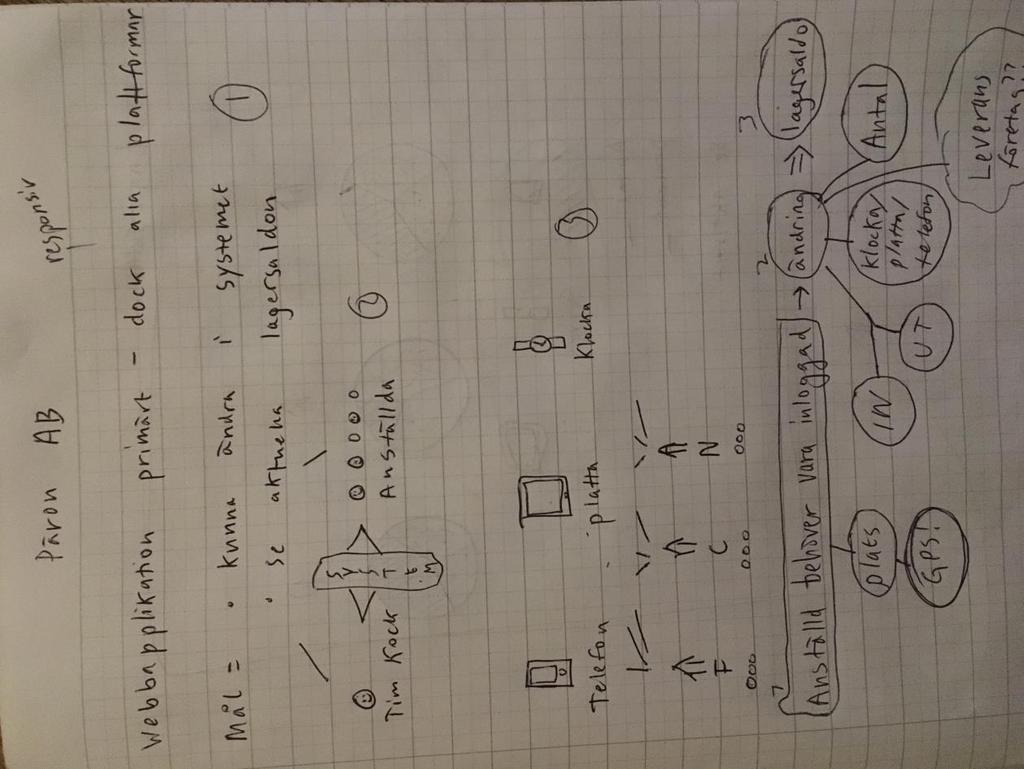 Päron AB
responsiv
Webbapplikation primärt - dock alla plattformar
Mål = • kunna ändra i systemet
• se aktuella lagersaldon
1
SYSTEM
Tim Kock
Anställda
2
Telefon
platta
Klocka
3
F
C
N
1
Anställd behöver vara inloggad → 2 ändring ⇒ 3 lagersaldo
plats
GPS!
IN
UT
Klocka/
platta/
telefon
Antal
Leverans
företag??